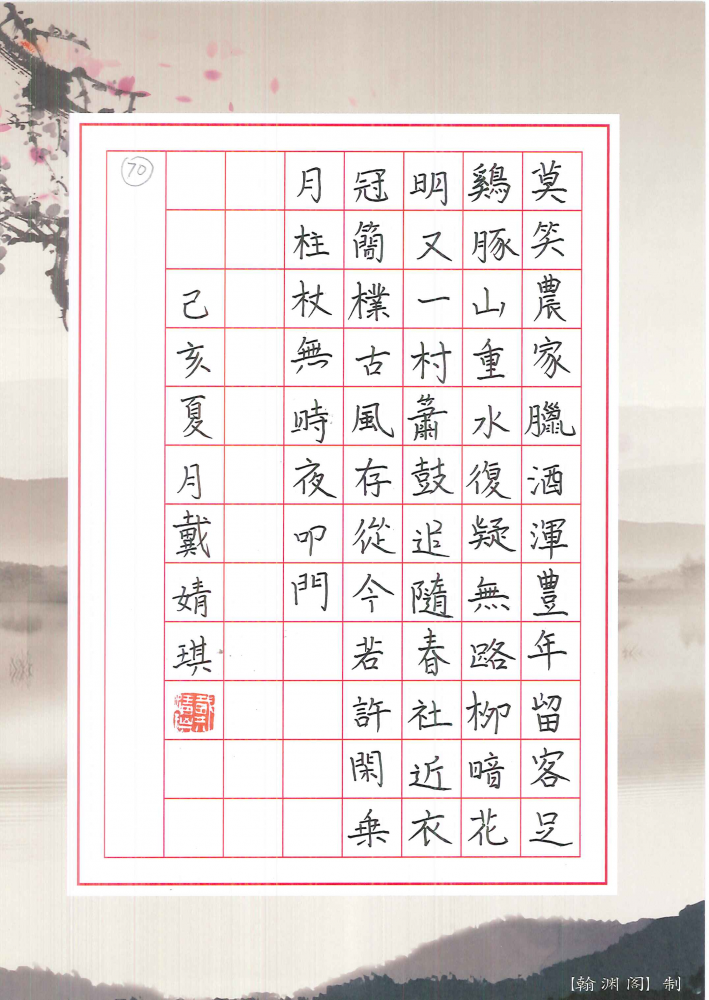 莫笑農家臘酒渾豐年留客足
鷄豚山重水復疑無路柳暗花
明又一村蕭鼓追隨春社近衣
冠簡樸古風存從今若許閑乗
月柱杖無時夜叩門
己亥夏月戴婧琪
70
【翰渊阁】制